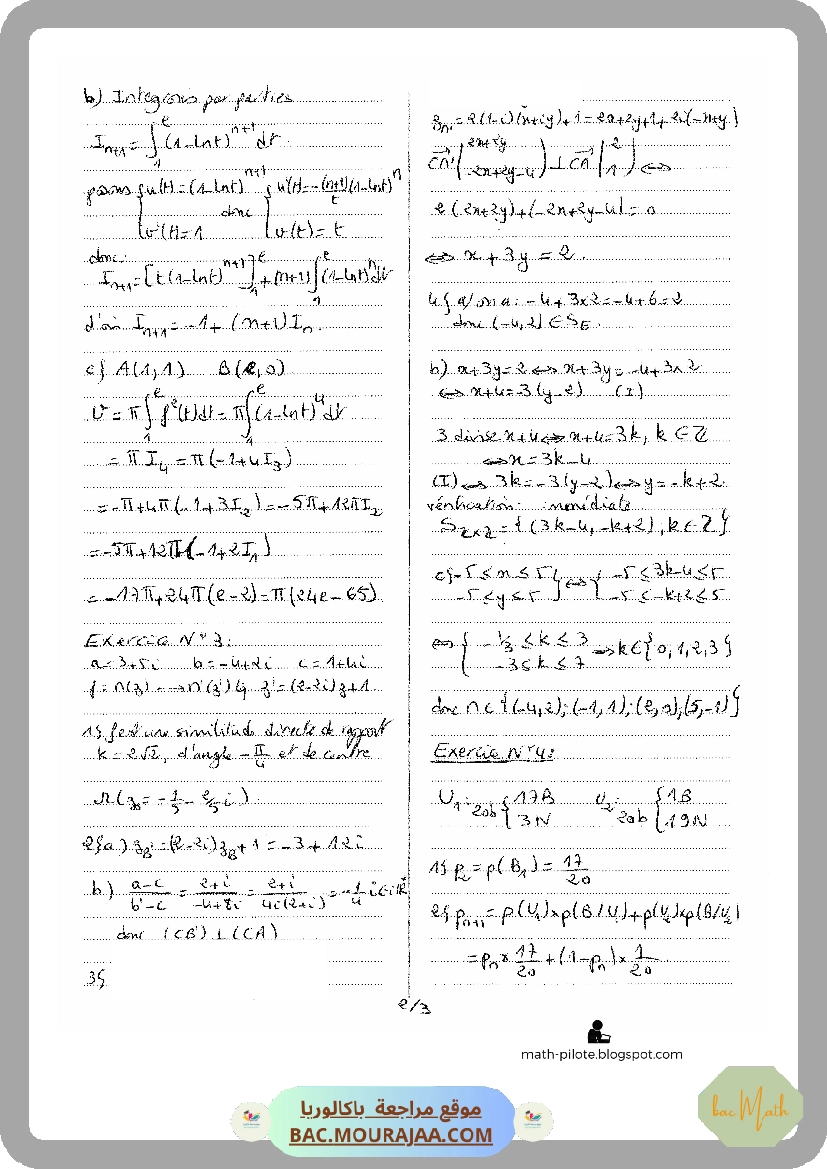 b) Integrons par parties
I_{n+1} = ∫_1^e (1-lnt)^{n+1} dt
posons { u(t) = (1-lnt)^{n+1} donc { u'(t) = -(n+1)/t (1-lnt)^n
v'(t) = 1 v(t) = t
donc
I_{n+1} = [t(1-lnt)^{n+1}]_1^e + (n+1) ∫_1^e (1-lnt)^n dt
d'où I_{n+1} = -1 + (n+1) I_n
c) A(1,1) B(e,0)
V = π ∫_1^e f²(t)dt = π ∫_1^e (1-lnt)^4 dt
= π I_4 = π(-1+4I_3)
= -π+4π(-1+3I_2) = -5π+12πI_2
= -5π+12π(-1+2I_1)
= -17π+24π(e-2) = π(24e-65)
Exercice N°3:
a=3+5i b=-4+2i c=1+4i
f = M(z) → M'(z') tq z' = (2-2i)z+1
1) f est une similitude directe de rapport
k = 2√2, d'angle -π/4 et de centre
Ω(z_Ω = -1/5 - 2/5 i)
2) a) z_{B'} = (2-2i)z_B + 1 = -3+12i
b) (a-c)/(b'-c) = (2+i)/(-4+8i) = (2+i)/(4i(2+i)) = -1/4 i ∈ iℝ*
donc (CB') ⊥ (CA)
3)
z_{M'} = 2(1-i)(x+iy)+1 = 2x+2y+1+2i(-x+y)
CM' (2x+2y / -2x+2y-4) ⊥ CA (2 / 1) ⟺
2(2x+2y)+(-2x+2y-4) = 0
⟺ x + 3y = 2
4) a) on a: -4+3x2 = -4+6 = 2
donc (-4,2) ∈ S_E
b) x+3y=2 ⟺ x+3y = -4+3x2
⟺ x+4 = -3(y-2) (I)
3 divise x+4 ⟺ x+4=3k, k ∈ ℤ
⟺ x=3k-4
(I) ⟺ 3k = -3(y-2) ⟺ y = -k+2
vérification: immédiate
S_{ℤxℤ} = {(3k-4, -k+2), k ∈ ℤ}
c) -5 ≤ x ≤ 5 } ⟺ { -5 ≤ 3k-4 ≤ 5
-5 ≤ y ≤ 5 -5 ≤ -k+2 ≤ 5
⟺ { -1/3 ≤ k ≤ 3 ⟹ k ∈ {0,1,2,3}
-3 ≤ k ≤ 7
donc M ∈ {(-4,2); (-1,1); (2,0); (5,-1)}
Exercice N°4:
U_1: 20b { 17B U_2: 20b { 1B
3N 19N
1) p_2 = p(B_1) = 17/20
2) p_{n+1} = p(U_1)xp(B/U_1)+p(U_2)xp(B/U_2)
= p_n x 17/20 + (1-p_n) x 1/20
2/3
math-pilote.blogspot.com
موقع مراجعة باكالوريا
BAC.MOURAJAA.COM
bac Math